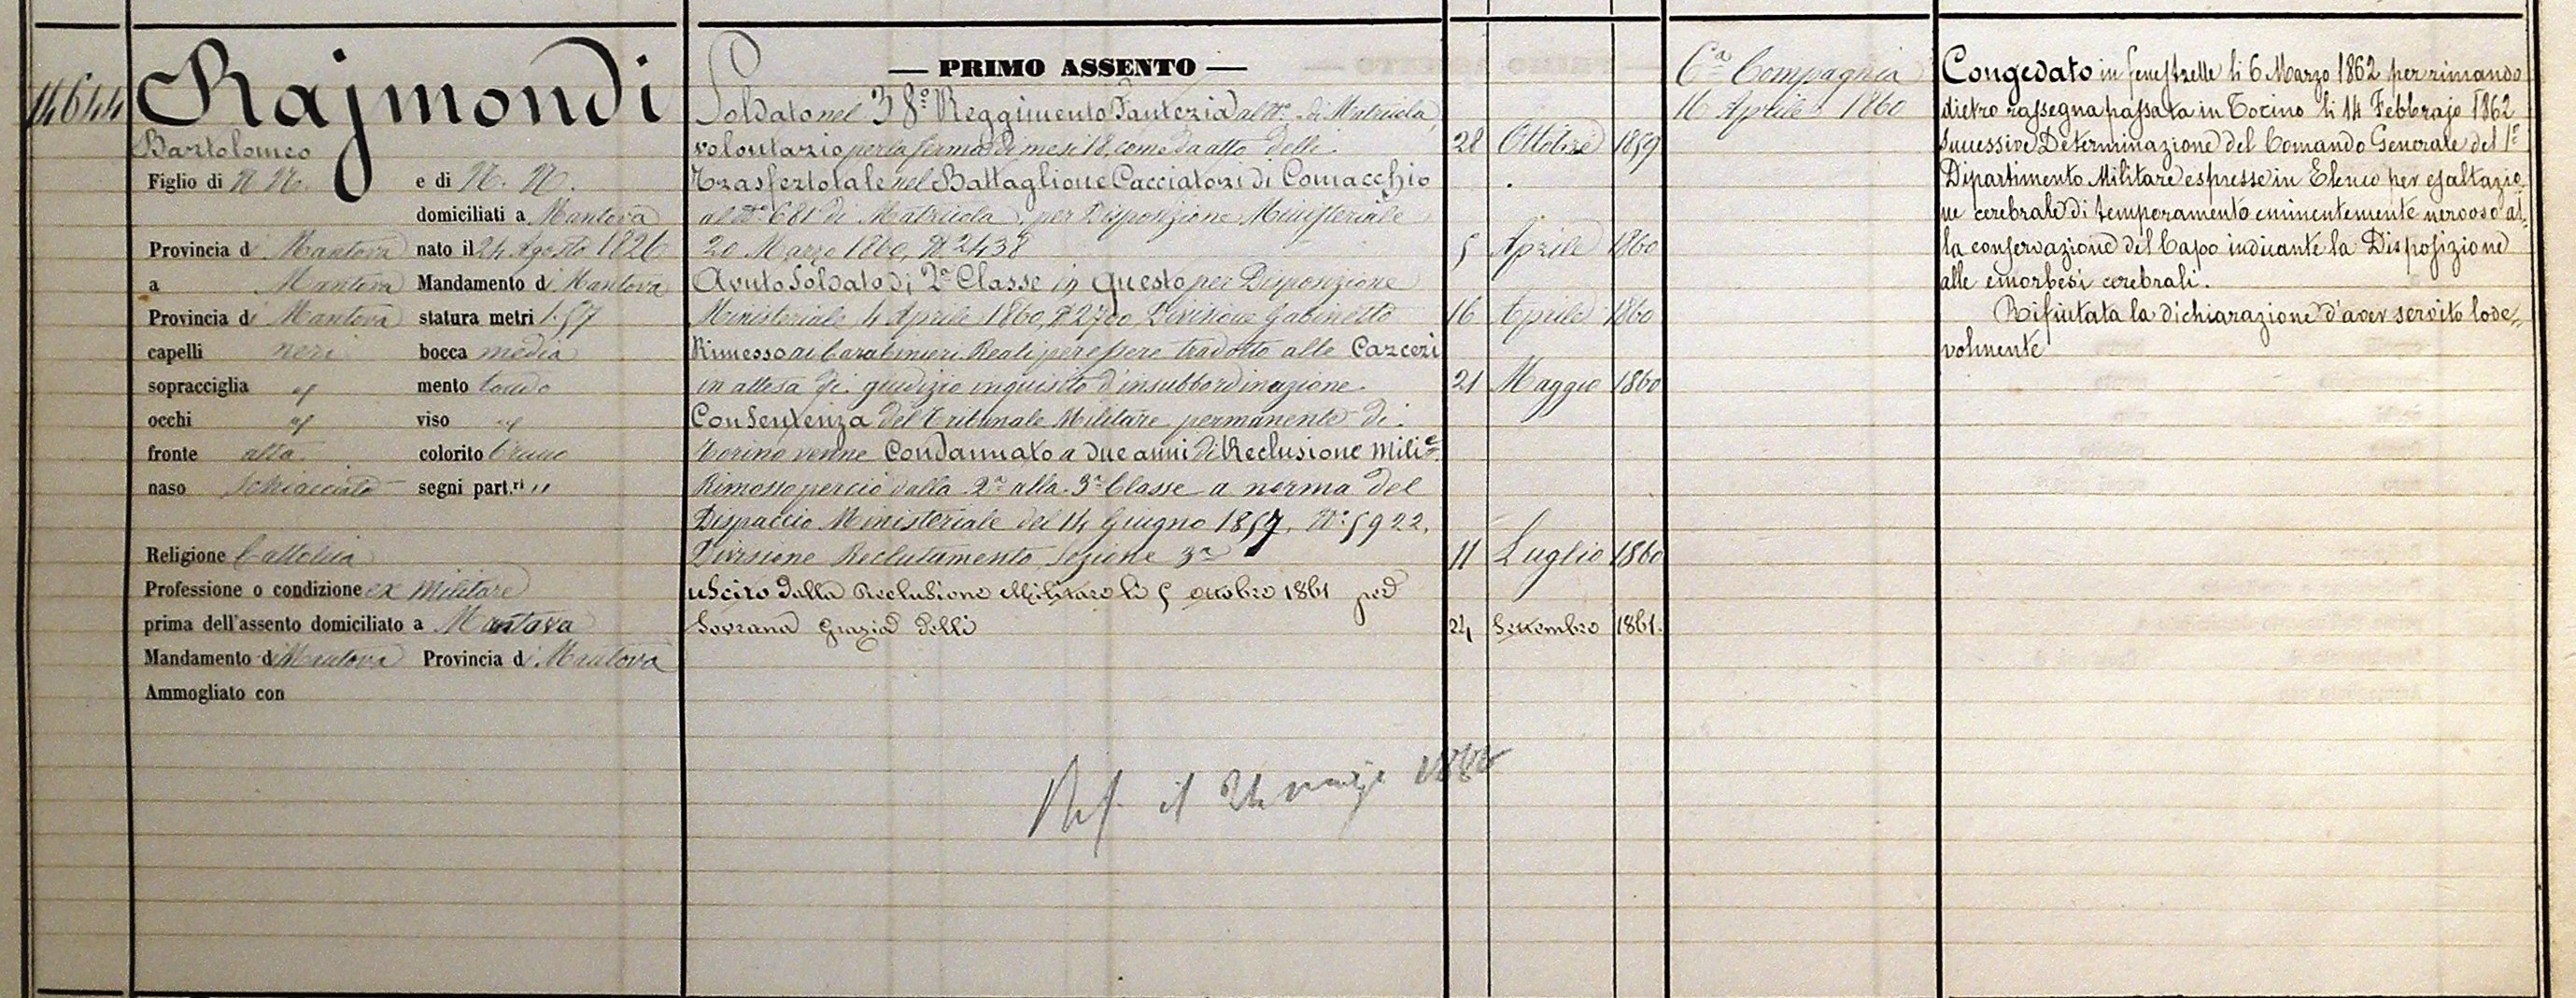 14644
Rajmondi
Bartolomeo
Figlio di N N. e di N. N.
domiciliati a Mantova
Provincia di Mantova nato il 24 Agosto 1826
a Mantova Mandamento di Mantova
Provincia di Mantova statura metri 1.57
capelli neri bocca media
sopracciglia id mento tondo
occhi id viso id
fronte alta colorito bruno
naso schiacciato segni part.ri "
Religione Cattolica
Professione o condizione ex Militare
prima dell'assento domiciliato a Mantova
Mandamento di Mantova Provincia di Mantova
Ammogliato con
— PRIMO ASSENTO —
Soldato nel 38° Reggimento Fanteria al N°. di Matricola
volontario per la ferma di mesi 18, come da atto delli 28 Ottobre 1859
Trasferto tale nel Battaglione Cacciatori di Comacchio
al N° 681 di Matricola, per Disposizione Ministeriale
20 Marzo 1860, N° 2438 5 Aprile 1860
Avuto Soldato di 2a Classe in questo per Disposizione
Ministeriale 4 Aprile 1860, N° 2700 Divisione Gabinetto 16 Aprile 1860
Rimesso ai Carabinieri Reali per essere tradotto alle Carceri
in attesa di giudizio inquisito d'insubbordinazione 21 Maggio 1860
Con Sentenza del Tribunale Militare permanente di
Torino venne Condannato a due anni di Reclusione Milire.
Rimosso perciò dalla 2a alla 3a Classe a norma del
Dispaccio Ministeriale del 14 Giugno 1857, N°: 5922,
Divisione Reclutamento, Sezione 3a 11 Luglio 1860
uscito dalla Reclusione Militare li 5 ottobre 1861 per
Sovrana Grazia delli 24 Settembre 1861.
il 24
6a Compagnia
16 Aprile 1860
Congedato in Fenestrelle li 6 Marzo 1862 per rimando
dietro rassegna passata in Torino li 14 Febbrajo 1862
Successive Determinazione del Comando Generale del 1°
Dipartimento Militare espresse in Elenco per esaltazio-
ne cerebrale di temperamento eminentemente nervoso al-
la conservazione del Capo indicante la Disposizione
alle emorbesi cerebrali.
Rifiutata la dichiarazione d'aver servito lode-
volmente